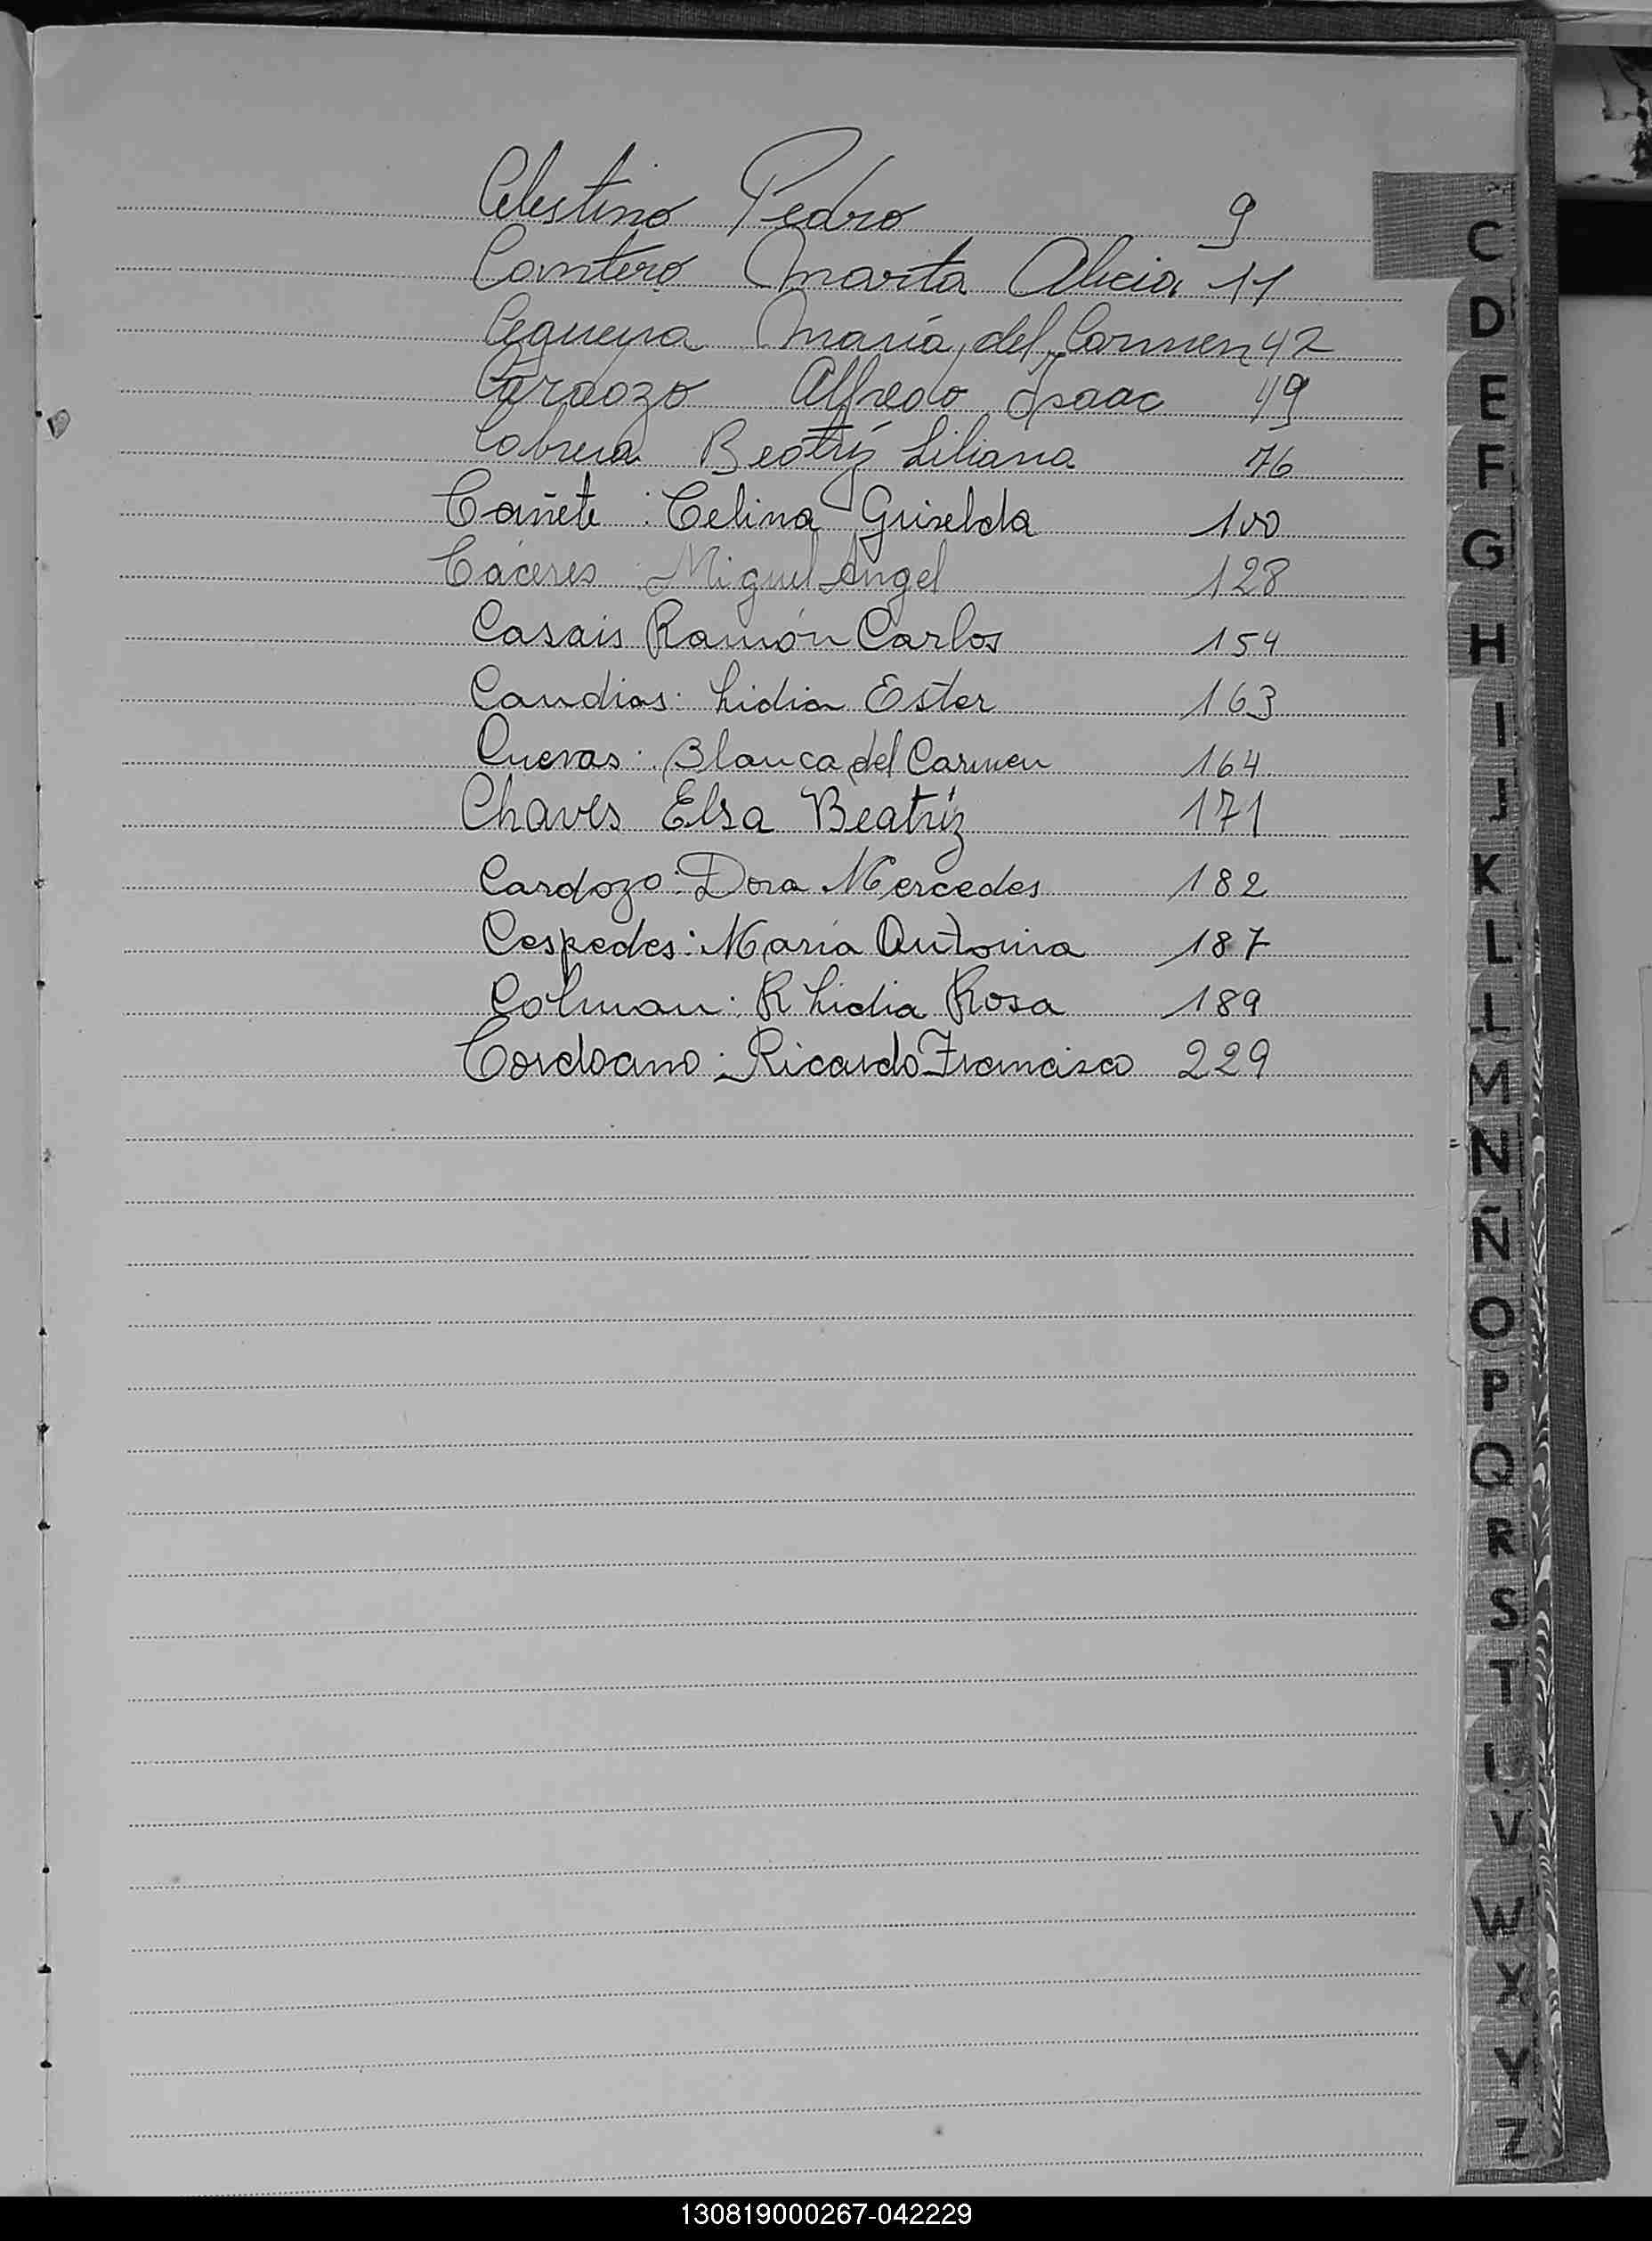 Celestino Pedro 9
Cantero Marta Alicia 11
Cequeyra María del Carmen 42
Cardozo Alfredo Isaac 49
Cabrera Beatríz Liliana 76
Cañete : Celina Griselda 100
Cáceres : Miguel Angel 128
Casais Ramón Carlos 154
Candias : Lidia Ester 163
Cuevas : Blanca del Carmen 164
Chaves Elsa Beatríz 171
Cardozo : Dora Mercedes 182
Cespedes : María Antonia 187
Colman : R Lidia Rosa 189
Ricardo Francisco 229
C
D
E
F
G
H
I
J
K
L
M
N
Ñ
O
P
Q
R
S
T
V
W
X
Y
Z
130819000267-042229